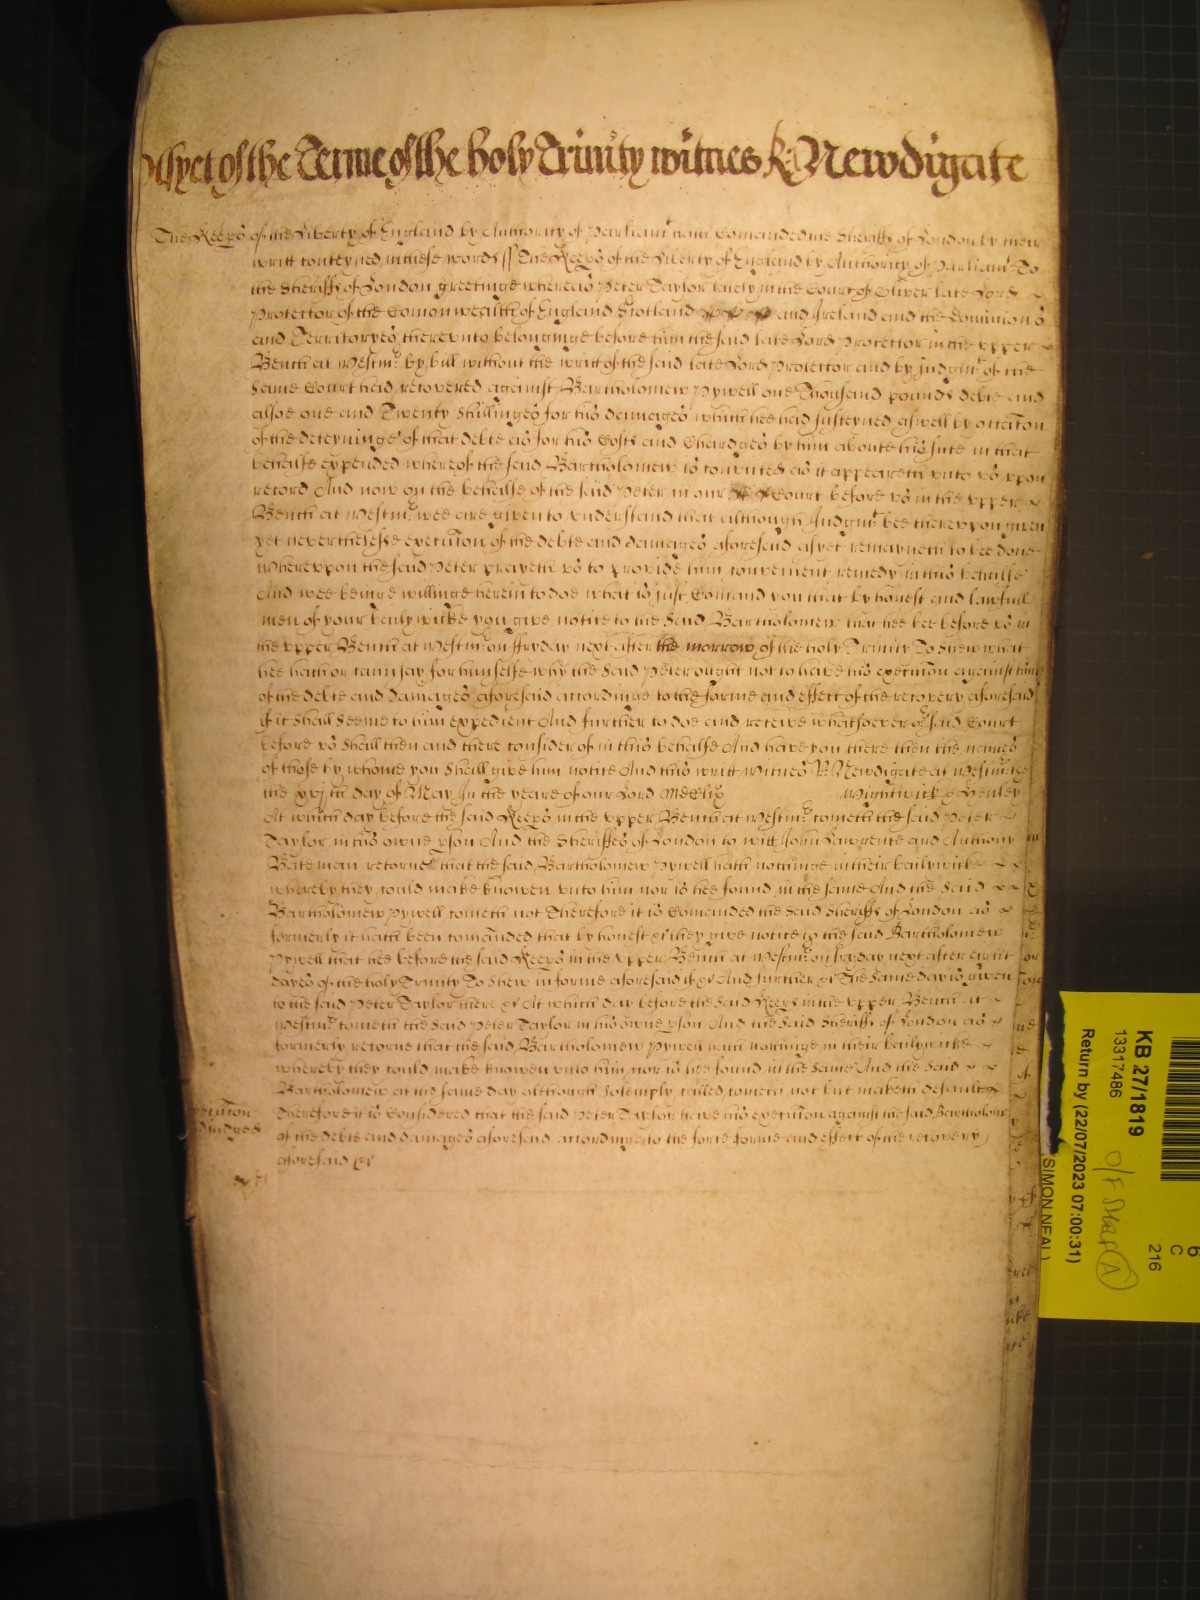 As yet of the Terme of the holy Trinity witnes R: Newdigate
The Keeps of the Liberty of England by Authority of Parliamt have Comanded me Sheriffs of London by their
writt conteyned in these words ss The Keeps of the Liberty of England by Authority of Parliamt To
the Sheriffs of London greetinge whereas Peter Taylor lately in the Court of Oliver late Lord
Protector of the Comonwealth of England Scotland and Ireland and the Dominions
and Territoryes thereunto belonginge before him the said late Lord Protector in the vpper
Bench at Westmr by bill without the writt of the said late Lord Protector and by Judgmt of the
same Court had recovered against Bartholomew Pywell one Thousand pounds debte and
alsoe one and Twenty Shillinges for his damages which hee had susteyned aswell by occacon
of the deteyninge of that debte as for his Costs and Chardges by him aboute his sute in that
behalfe expended whereof the said Bartholomew is convicted as it appeareth vnto vs vpon
record And now on the behalfe of the said Peter in our Court before vs in the vpper
Bench at Westmr wee are given to vnderstand that although Judgmt bee therevpon given
yet nevertheless execucon of the debte and damages aforesaid as yet remayneth to bee done
wherevpon the said Peter prayeth vs to provide him convenient remedy in this behalfe
And wee beinge willinge herein to doe what is just Comand you that by honest and lawfull
men of your bailywicke you give notice to the said Bartholomew that hee bee before vs in
the vpper Bench at Westmr on ffryday next after the morrow of the holy Trinity To shew what
hee hath or cann say for himselfe why the said Peter ought not to have his execucon against him
of the debte and damages aforesaid accordinge to the forme and effect of the recovery aforesaid
if it shall seeme to him expedient And further to doe and receive whatsoever or said Court
before vs shall then and there consider of in this behalfe And have you there then the names
of those by whome you shall give him notice And this writt witnes R Newdigate at Westmr
the xxjth day of May In the yeare of our Lord MDClix Wightwick & Henley
At which day before the said Keeps in the vpper Bench at Westmr cometh the said Peter
Taylor in his owne pson And the Sheriffes of London to witt John Lawrence and Anthony
Bateman retorne that the said Bartholomew Pywell hath nothinge in their bailywicke
whereby they could make knowen vnto him nor is hee found in the same And the said
Bartholomew Pywell cometh not Therefore it is Comanded the said Sheriffs of London as
formerly it hath been comanded that by honest &c they give notice to the said Bartholomew
Pywell that hee before the said Keeps in the vpper Bench at Westmr on fryday next after eight
dayes of the holy Trinity To shew in forme aforesaid if &c And further &c The same day is given
to the said Peter Taylor there &c At which day before the said Keeps in the vpper Bench at
Westmr cometh the said Peter Taylor in his owne pson And the said Sheriffs of London as
formerly retorne that the said Bartholomew Pywell hath nothinge in their bailywicke
whereby they could make knowen vnto him nor is hee found in the same And the said
Bartholomew at the same day although solemply called cometh not but maketh default
Therefore it is Considered that the said Peter Taylor have his execucon against the said Bartholomew
of the debte and damages aforesaid accordinge to the force forme and effect of the recovery
aforesaid &c
ecucon
diudged
KB 27/1819
13317486
Return by (22/07/2023 07:00:31)
(SIMON NEAL)
6
C
216
A